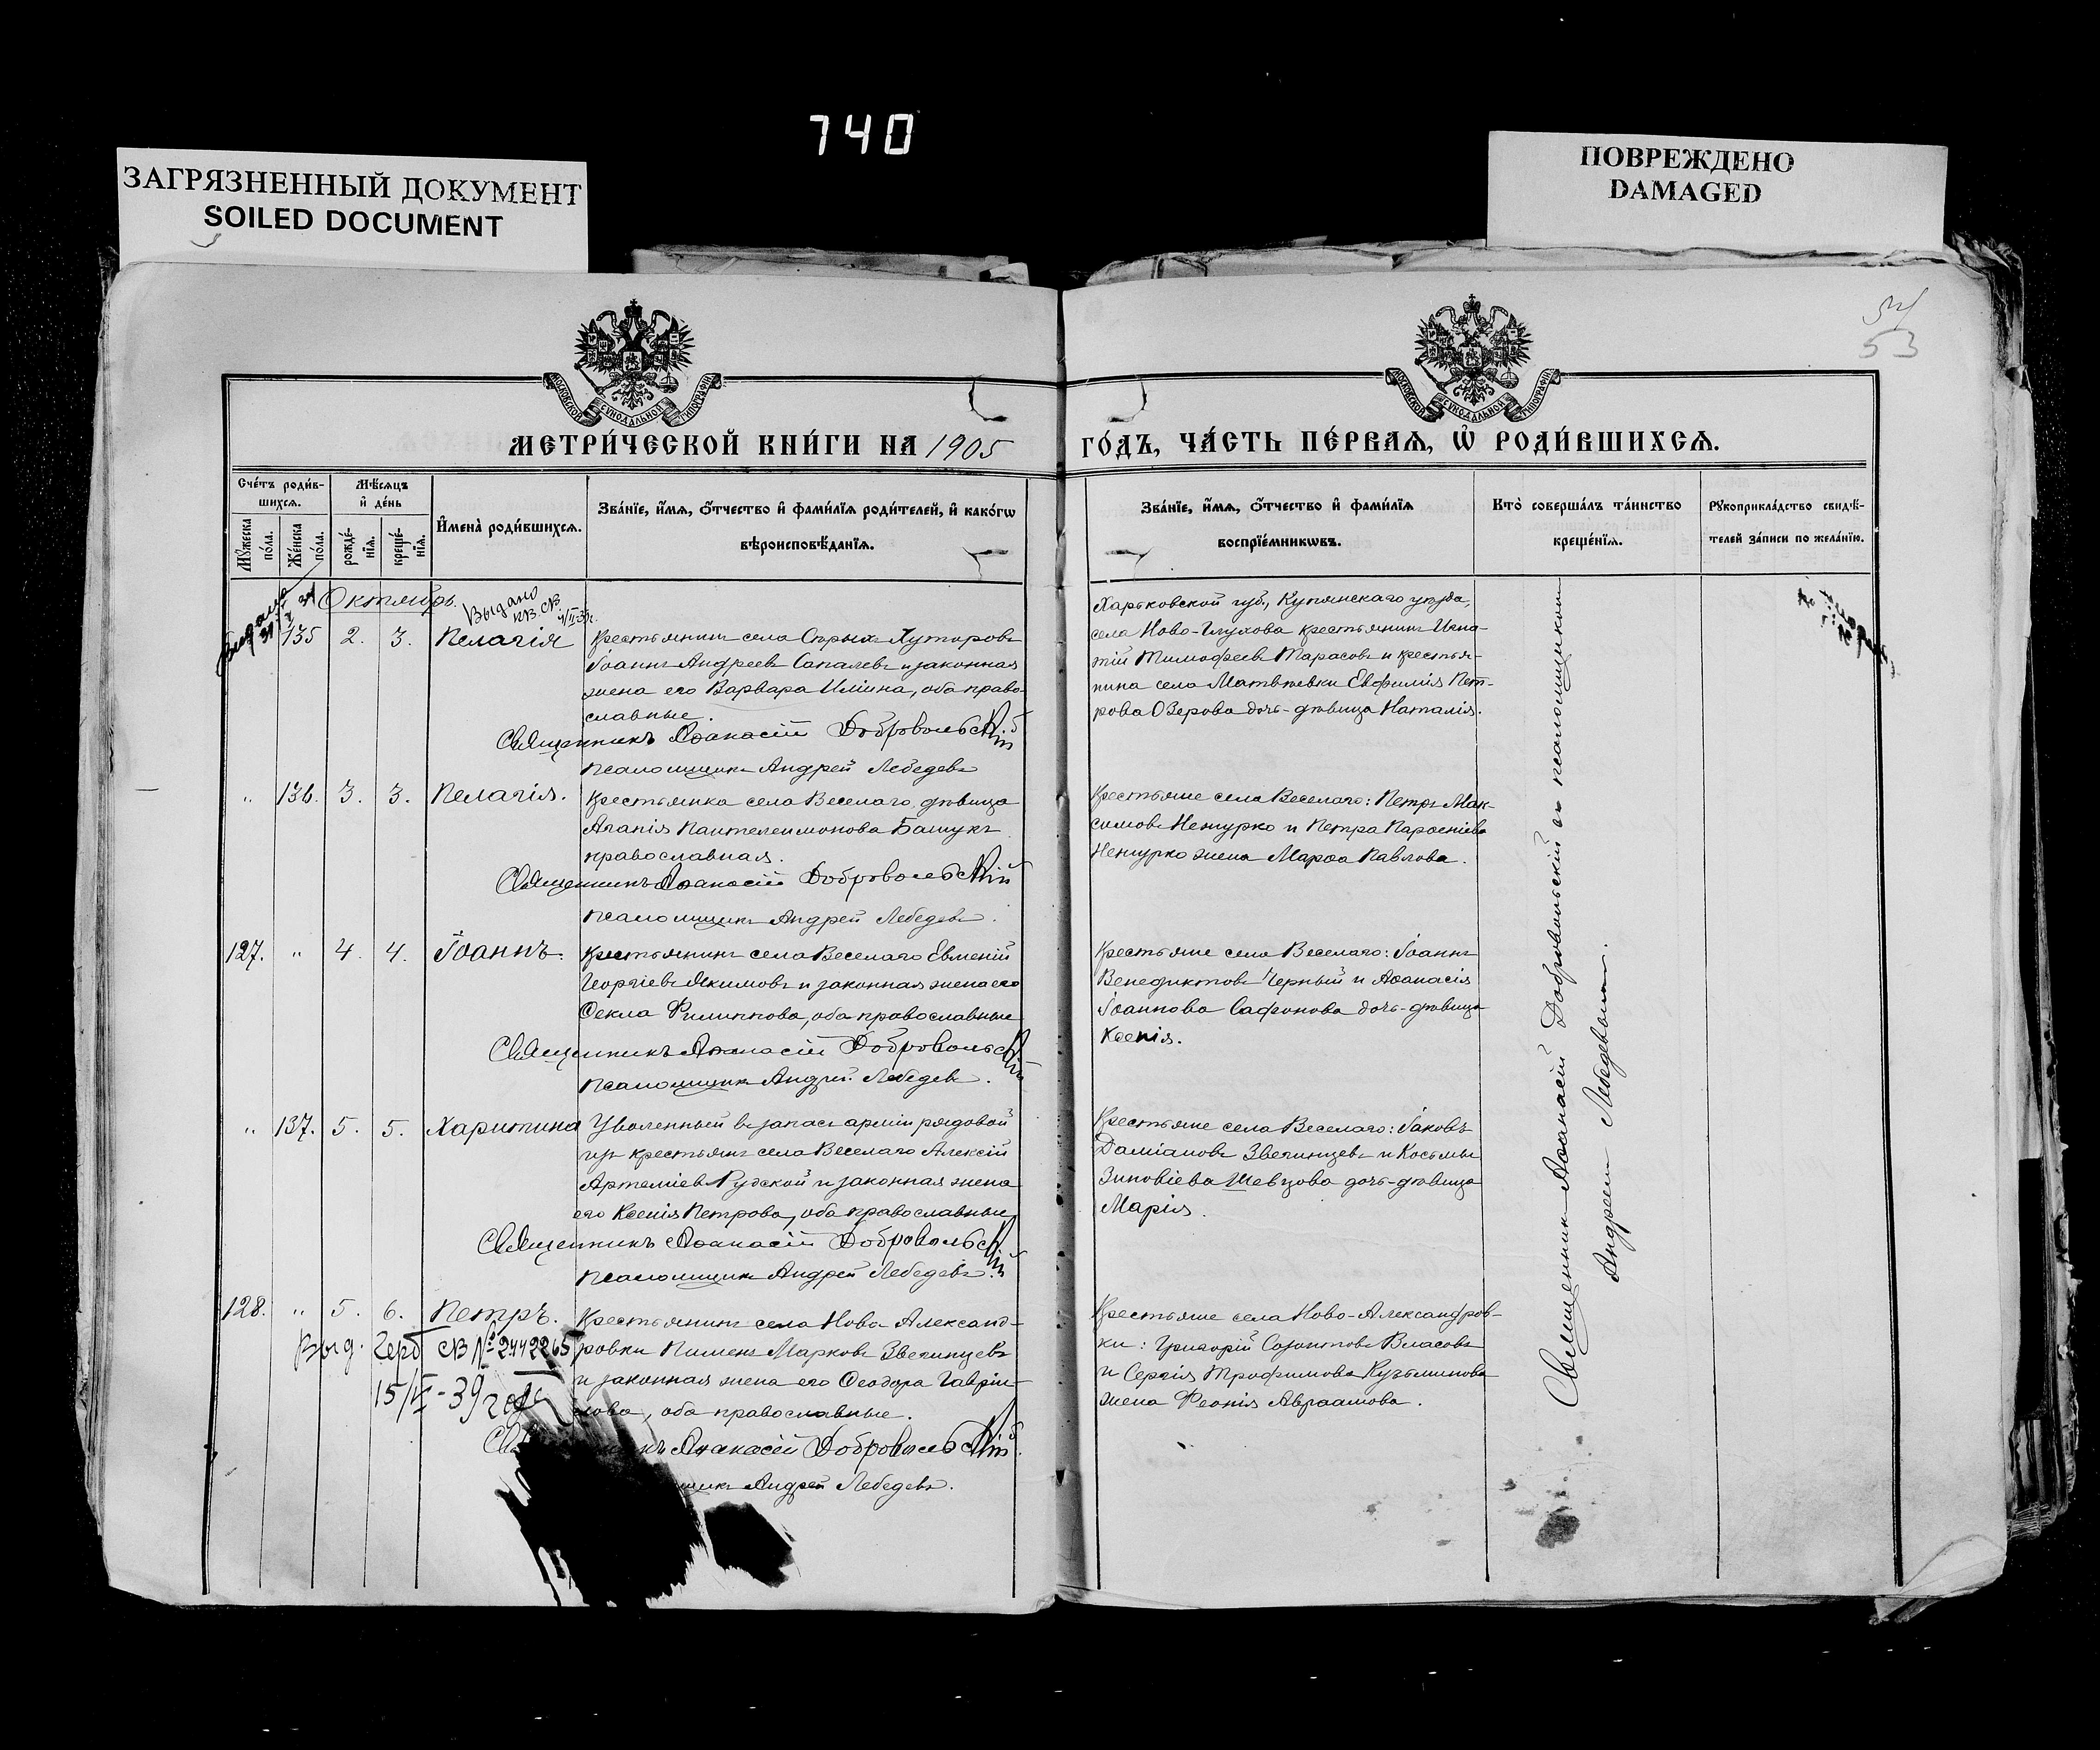 740
ЗАГРЯЗНЕННЫЙ ДОКУМЕНТ
SOILED DOCUMENT
ПОВРЕЖДЕНО
DAMAGED
53
МОСКОВСКОЙ СѴНОДАЛЬНОЙ ТИПОГРАФІИ
МОСКОВСКОЙ СѴНОДАЛЬНОЙ ТИПОГРАФІИ
МЕТРИ́ЧЕСКОЙ КНИ́ГИ НА 1905
ГО́ДЪ, ЧА́СТЬ ПЕ́РВАѦ, Ѽ РОДИ́ВШИХСѦ.
Сче́тъ роди́в-
шихсѧ.
Мѣ́сѧцъ
и҆ де́нь
Мꙋ́жеска по́ла.
Же́нска по́ла.
рожде́-
нїѧ.
креще́-
нїѧ.
И҆мена̀ роди́вшихсѧ.
Зва́нїе, и҆́мѧ, ѻ҆́тчество и҆ фами́лїѧ роди́телей, и҆ како́гѡ
вѣроисповѣ́данїѧ.
Зва́нїе, и҆́мѧ, ѻ҆́тчество и҆ фами́лїѧ
воспрїе́мникѡвъ.
Кто̀ соверша́лъ та́инство
креще́нїѧ.
Рꙋкоприкла́дство свидѣ́-
телей за́писи по жела́нїю.
Октябрь.
Выдано
135 2. 3. Пелагія
Крестьянинъ села Старыхъ Хуторовъ
Іоаннъ Андреевъ Сапалевъ и законная
жена его Варвара Иліина, оба право-
славные.
Священникъ Аѳанасій Добровольскій
Псаломщикъ Андрей Лебедевъ
Харьковской губ., Купянскаго уѣзда,
села Ново-Глухова крестьянинъ Игна-
тій Тимоѳеевъ Тарасовъ и крестья-
нина села Матвѣевки Евфимія Пет-
рова Озерова дочь-дѣвица Наталія.
" 136. 3. 3. Пелагія.
Крестьянка села Веселаго, дѣвица
Агапія Пантелеимонова Башукъ
православная.
Священникъ Аѳанасій Добровольскій
Псаломщикъ Андрей Лебедевъ.
Крестьяне села Веселаго: Петръ Мак-
симовъ Нежурко и Петра Парѳеніева
Нежурко жена Марѳа Павлова.
127. " 4. 4. Іоаннъ.
Крестьянинъ села Веселаго Евменій
Георгіевъ Якимовъ и законная жена его
Ѳекла Филиппова, оба православные
Священникъ Аѳанасій Добровольскій
Псаломщикъ Андрей Лебедевъ.
Крестьяне села Веселаго: Іоаннъ
Венедиктовъ Черный и Аѳанасія
Іоаннова Сафонова дочь-дѣвица
Ксенія.
" 137. 5. 5. Харитина
Уволенный въ запасъ арміи рядовой
изъ крестьянъ села Веселаго Алексій
Артеміевъ Рудской и законная жена
его Ксенія Петрова, оба православные
Священникъ Аѳанасій Добровольскій
Псаломщикъ Андрей Лебедевъ.
Крестьяне села Веселаго: Іаковъ
Даміановъ Звегинцевъ и Косьмы
Зиновіева Шевцова дочь-дѣвица
Марія.
128. " 5. 6. Петръ.
Выд. Герб СВ № 2442265
15/VI-39 года
Крестьянинъ села Ново-Александ-
ровки Пименъ Марковъ Звегинцевъ
и законная жена его Ѳеодора Гаврии-
лова, оба православные.
Аѳанасій Добровольскій
Андрей Лебедевъ.
Крестьяне села Ново-Александров-
ки: Григорій Созонтовъ Власовъ
и Сергія Трофимова Кузьминова
жена Ѳеонія Авраамова.
Священникъ Аѳанасій Добровольскій съ псаломщикомъ
Андреемъ Лебедевымъ.